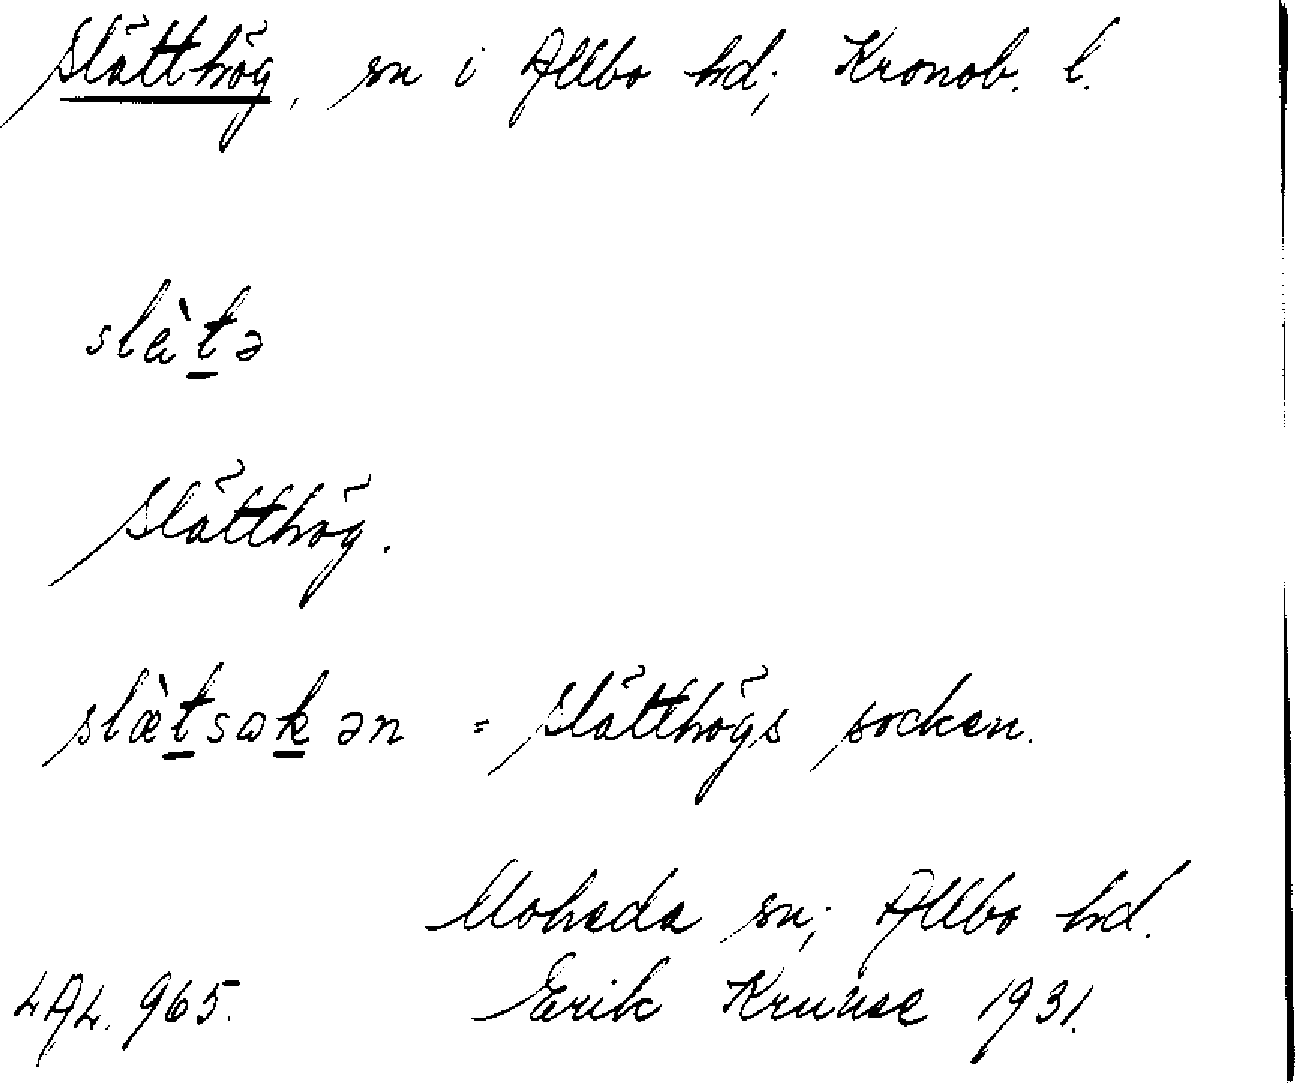 Slätthög, sn i Allbo hd; Kronob. l.
slæ̀t̠ə
Slätthög.
slæ̀t̠sɷk̠ən = Slätthögs socken.
Moheda sn; Allbo hd.
LAL. 965. Erik Kruuse 1931.